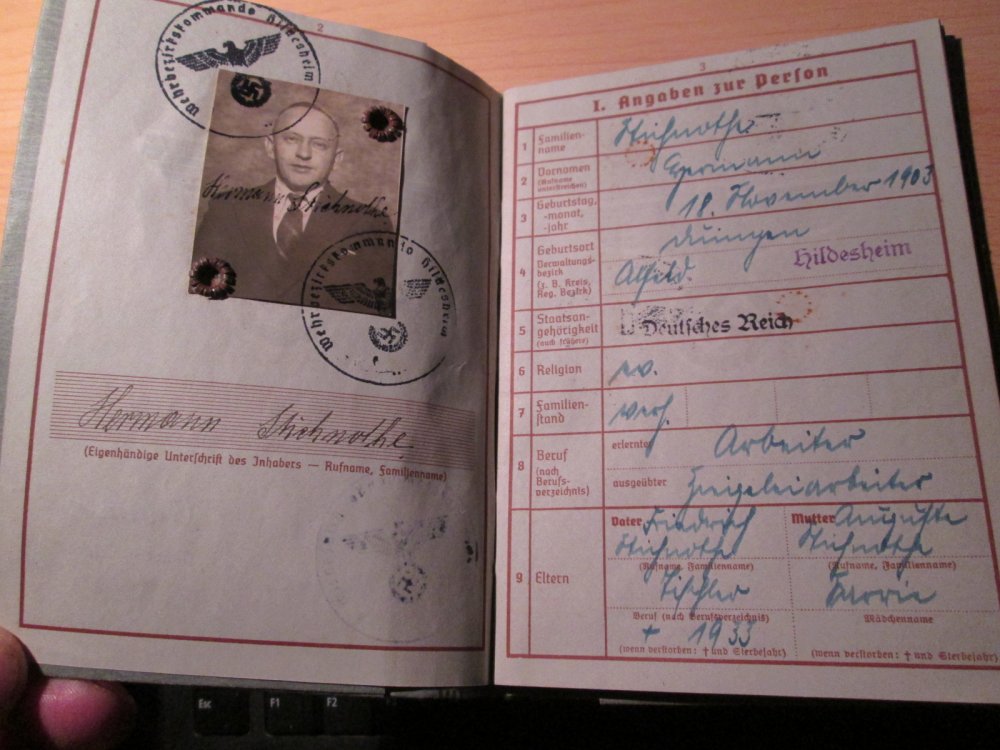 2
Wehrbezirkskommando Hildesheim
Hermann Stichnothe
Wehrbezirkskommando Hildesheim
Hermann Stichnothe
(Eigenhändige Unterschrift des Inhabers — Rufname, Familienname)
3
I. Angaben zur Person
1 Familien-
name
Stichnothe
2 Vornamen
(Rufname
unterstreichen)
Hermann
3 Geburtstag,
-monat,
-jahr
18. November 1903
4 Geburtsort
Verwaltungs-
bezirk
(z. B. Kreis,
Reg. Bezirk)
Duingen
Alfeld.
Hildesheim
5 Staatsan-
gehörigkeit
(auch frühere)
Deutsches Reich
6 Religion
ev.
7 Familien-
stand
verh.
8 Beruf
(nach
Berufs-
verzeichnis)
erlernter Arbeiter
ausgeübter Ziegeleiarbeiter
9 Eltern
Vater Friedrich
Stichnothe
(Rufname, Familienname)
Tischler
Beruf (nach Berufsverzeichnis)
† 1933
(wenn verstorben: † und Sterbejahr)
Mutter Auguste
Stichnothe
(Rufname, Familienname)
Mädchenname
(wenn verstorben: † und Sterbejahr)
Esc
F1
F2